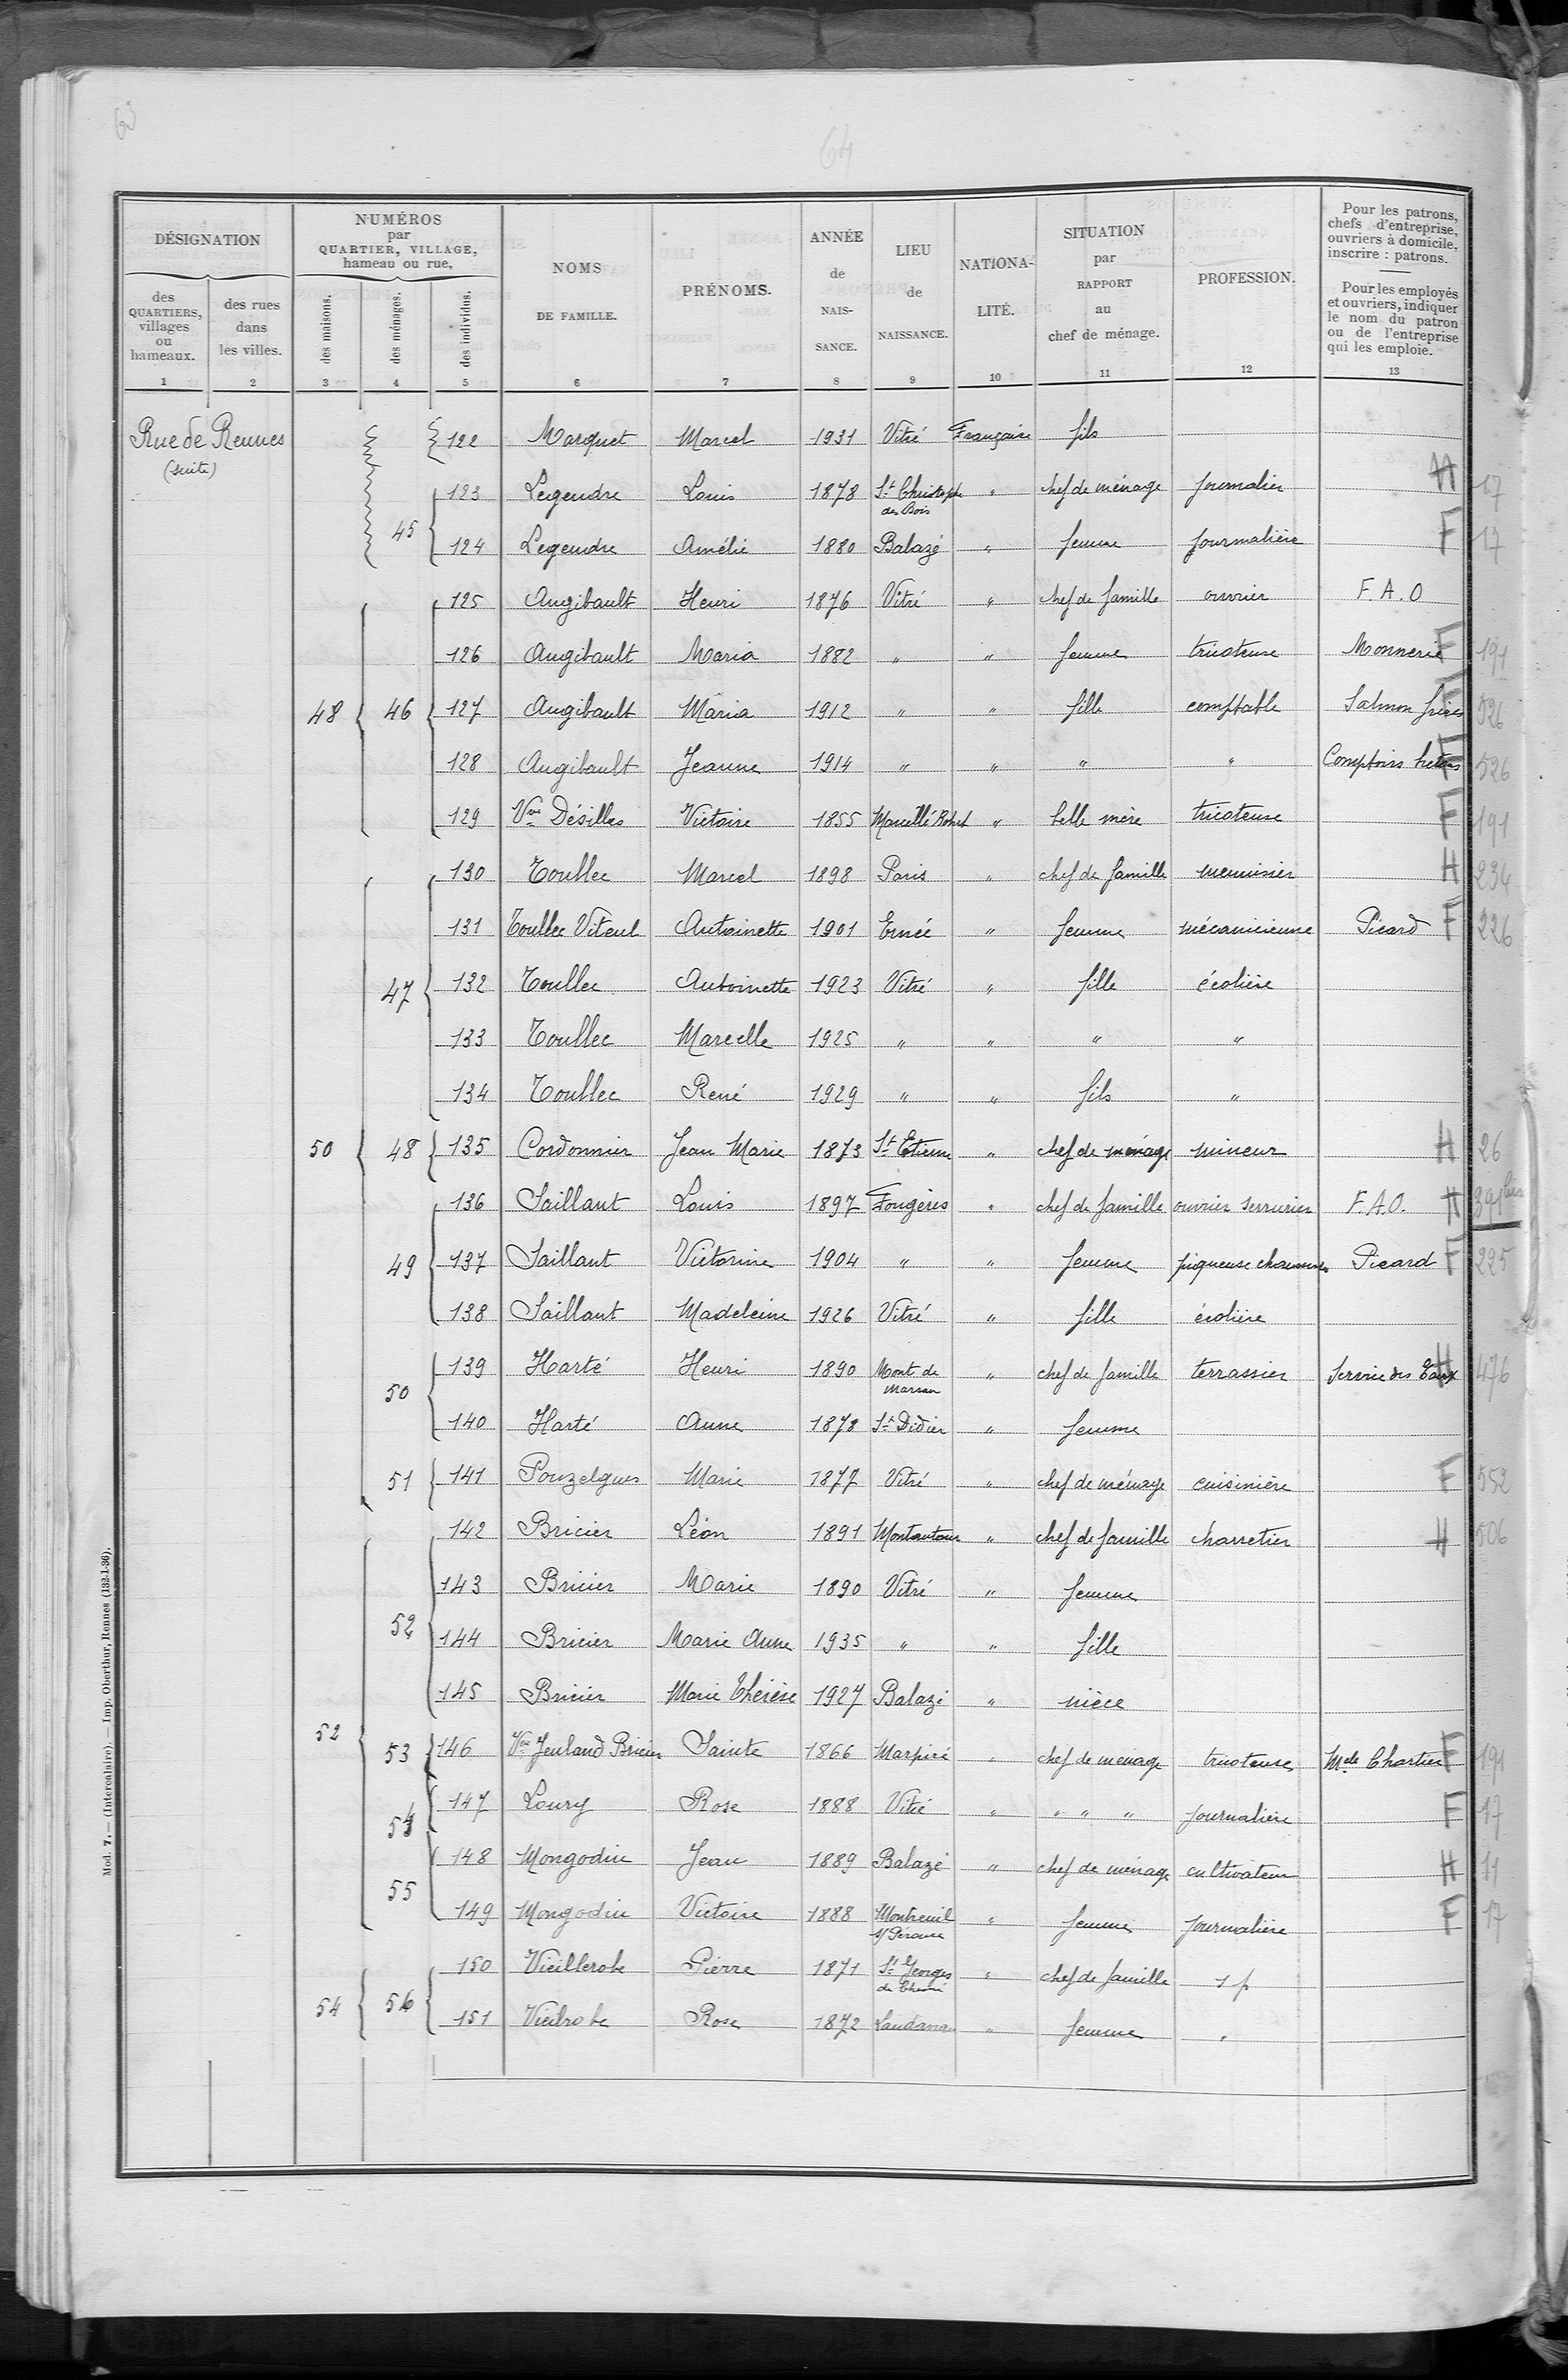 63
64
DÉSIGNATION
des QUARTIERS, villages ou hameaux.
des rues dans les villes.
NUMÉROS par QUARTIER, VILLAGE, hameau ou rue,
des maisons.
des ménages.
des individus.
NOMS DE FAMILLE.
PRÉNOMS.
ANNÉE de NAIS-SANCE.
LIEU de NAISSANCE.
NATIONA-LITÉ.
SITUATION par RAPPORT au chef de ménage.
PROFESSION.
Pour les patrons, chefs d'entreprise, ouvriers à domicile, inscrire : patrons.
Pour les employés et ouvriers, indiquer le nom du patron ou de l'entreprise qui les emploie.
1 2 3 4 5 6 7 8 9 10 11 12 13
Rue de Rennes 122 Marquet Marcel 1931 Vitré Française fils
(suite)
123 Legendre Louis 1878 St Christophe des Bois " chef de ménage journalier H 17
45 124 Legendre Amélie 1880 Balazé " femme journalière F 17
125 Augibault Henri 1876 Vitré " chef de famille ouvrier F.A.O
126 Augibault Maria 1882 " " femme tricoteuse Monnerie F 191
48 46 127 Augibault Maria 1912 " " fille comptable Salmon frères F 526
128 Augibault Jeanne 1914 " " " " Comptoirs F 526
129 Vve Désilles Victoire 1855 Marcillé Robert " belle mère tricoteuse F 191
130 Toullec Marcel 1898 Paris " chef de famille menuisier H 234
131 Toullec Viteul Antoinette 1901 Ernée " femme mécanicienne Picard F 226
47 132 Toullec Antoinette 1923 Vitré " fille écolière
133 Toullec Marcelle 1925 " " " "
134 Toullec René 1929 " " fils "
50 48 135 Cordonnier Jean Marie 1873 St Etienne " chef de ménage mineur H 26
136 Saillant Louis 1897 Fougères " chef de famille ouvrier serrurier F.A.O. H 391 bis
49 137 Saillant Victorine 1904 " " femme piqueuse chaussures Picard F 225
138 Saillant Madeleine 1926 Vitré " fille écolière
139 Harté Henri 1890 Mont de Marsan " chef de famille terrassier Service des Eaux H 476
50 140 Harté Anne 1878 St Didier " femme
51 141 Pouzelgues Marie 1877 Vitré " chef de ménage cuisinière F 552
142 Bricier Léon 1891 Montautour " chef de famille charretier H 506
143 Bricier Marie 1890 Vitré " femme
52 144 Bricier Marie Anne 1935 " " fille
145 Bricier Marie Thérèse 1927 Balazé " nièce
52 53 146 Vve Jeuland Bricier Sainte 1866 Marpiré " chef de ménage tricoteuse Mde Chartier F 191
54 147 Loury Rose 1888 Vitré " " " " journalière F 17
148 Mongodin Jean 1889 Balazé " chef de ménage cultivateur H 11
55 149 Mongodin Victoire 1888 Montreuil s/ Pérouse " femme journalière F 17
150 Vieillerobe Pierre 1871 St Georges de " chef de famille s p
54 56 151 Vieilrobe Rose 1872 Landavran " femme "
Mod. 7. — (Intercalaire). — Imp. Oberthur, Rennes (132-1-36).